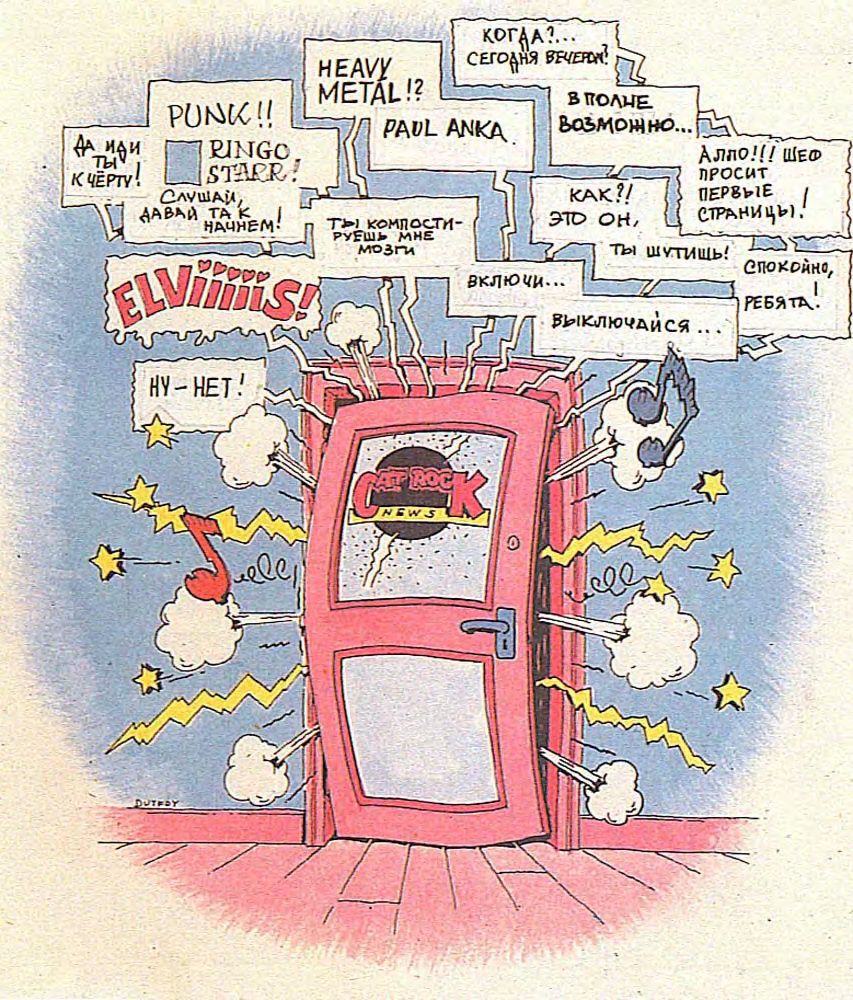 КОГДА?...
СЕГОДНЯ ВЕЧЕРОМ?
HEAVY
METAL!?
PUNK!!
PAUL ANKA.
ВПОЛНЕ
ВОЗМОЖНО...
ДА ИДИ
ТЫ
К ЧЁРТУ!
RINGO
STARR!
АЛЛО!!! ШЕФ
ПРОСИТ
ПЕРВЫЕ
СТРАНИЦЫ!
СЛУШАЙ,
ДАВАЙ ТАК
НАЧНЕМ!
КАК?!
ЭТО ОН,
ТЫ КОМПОСТИ-
РУЕШЬ МНЕ
МОЗГИ
ТЫ ШУТИШЬ!
СПОКОЙНО,
РЕБЯТА!
ELViiiiiS!
ВКЛЮЧИ...
ВЫКЛЮЧАЙСЯ...
НУ-НЕТ!
CAT ROCK
NEWS
DUTFOY